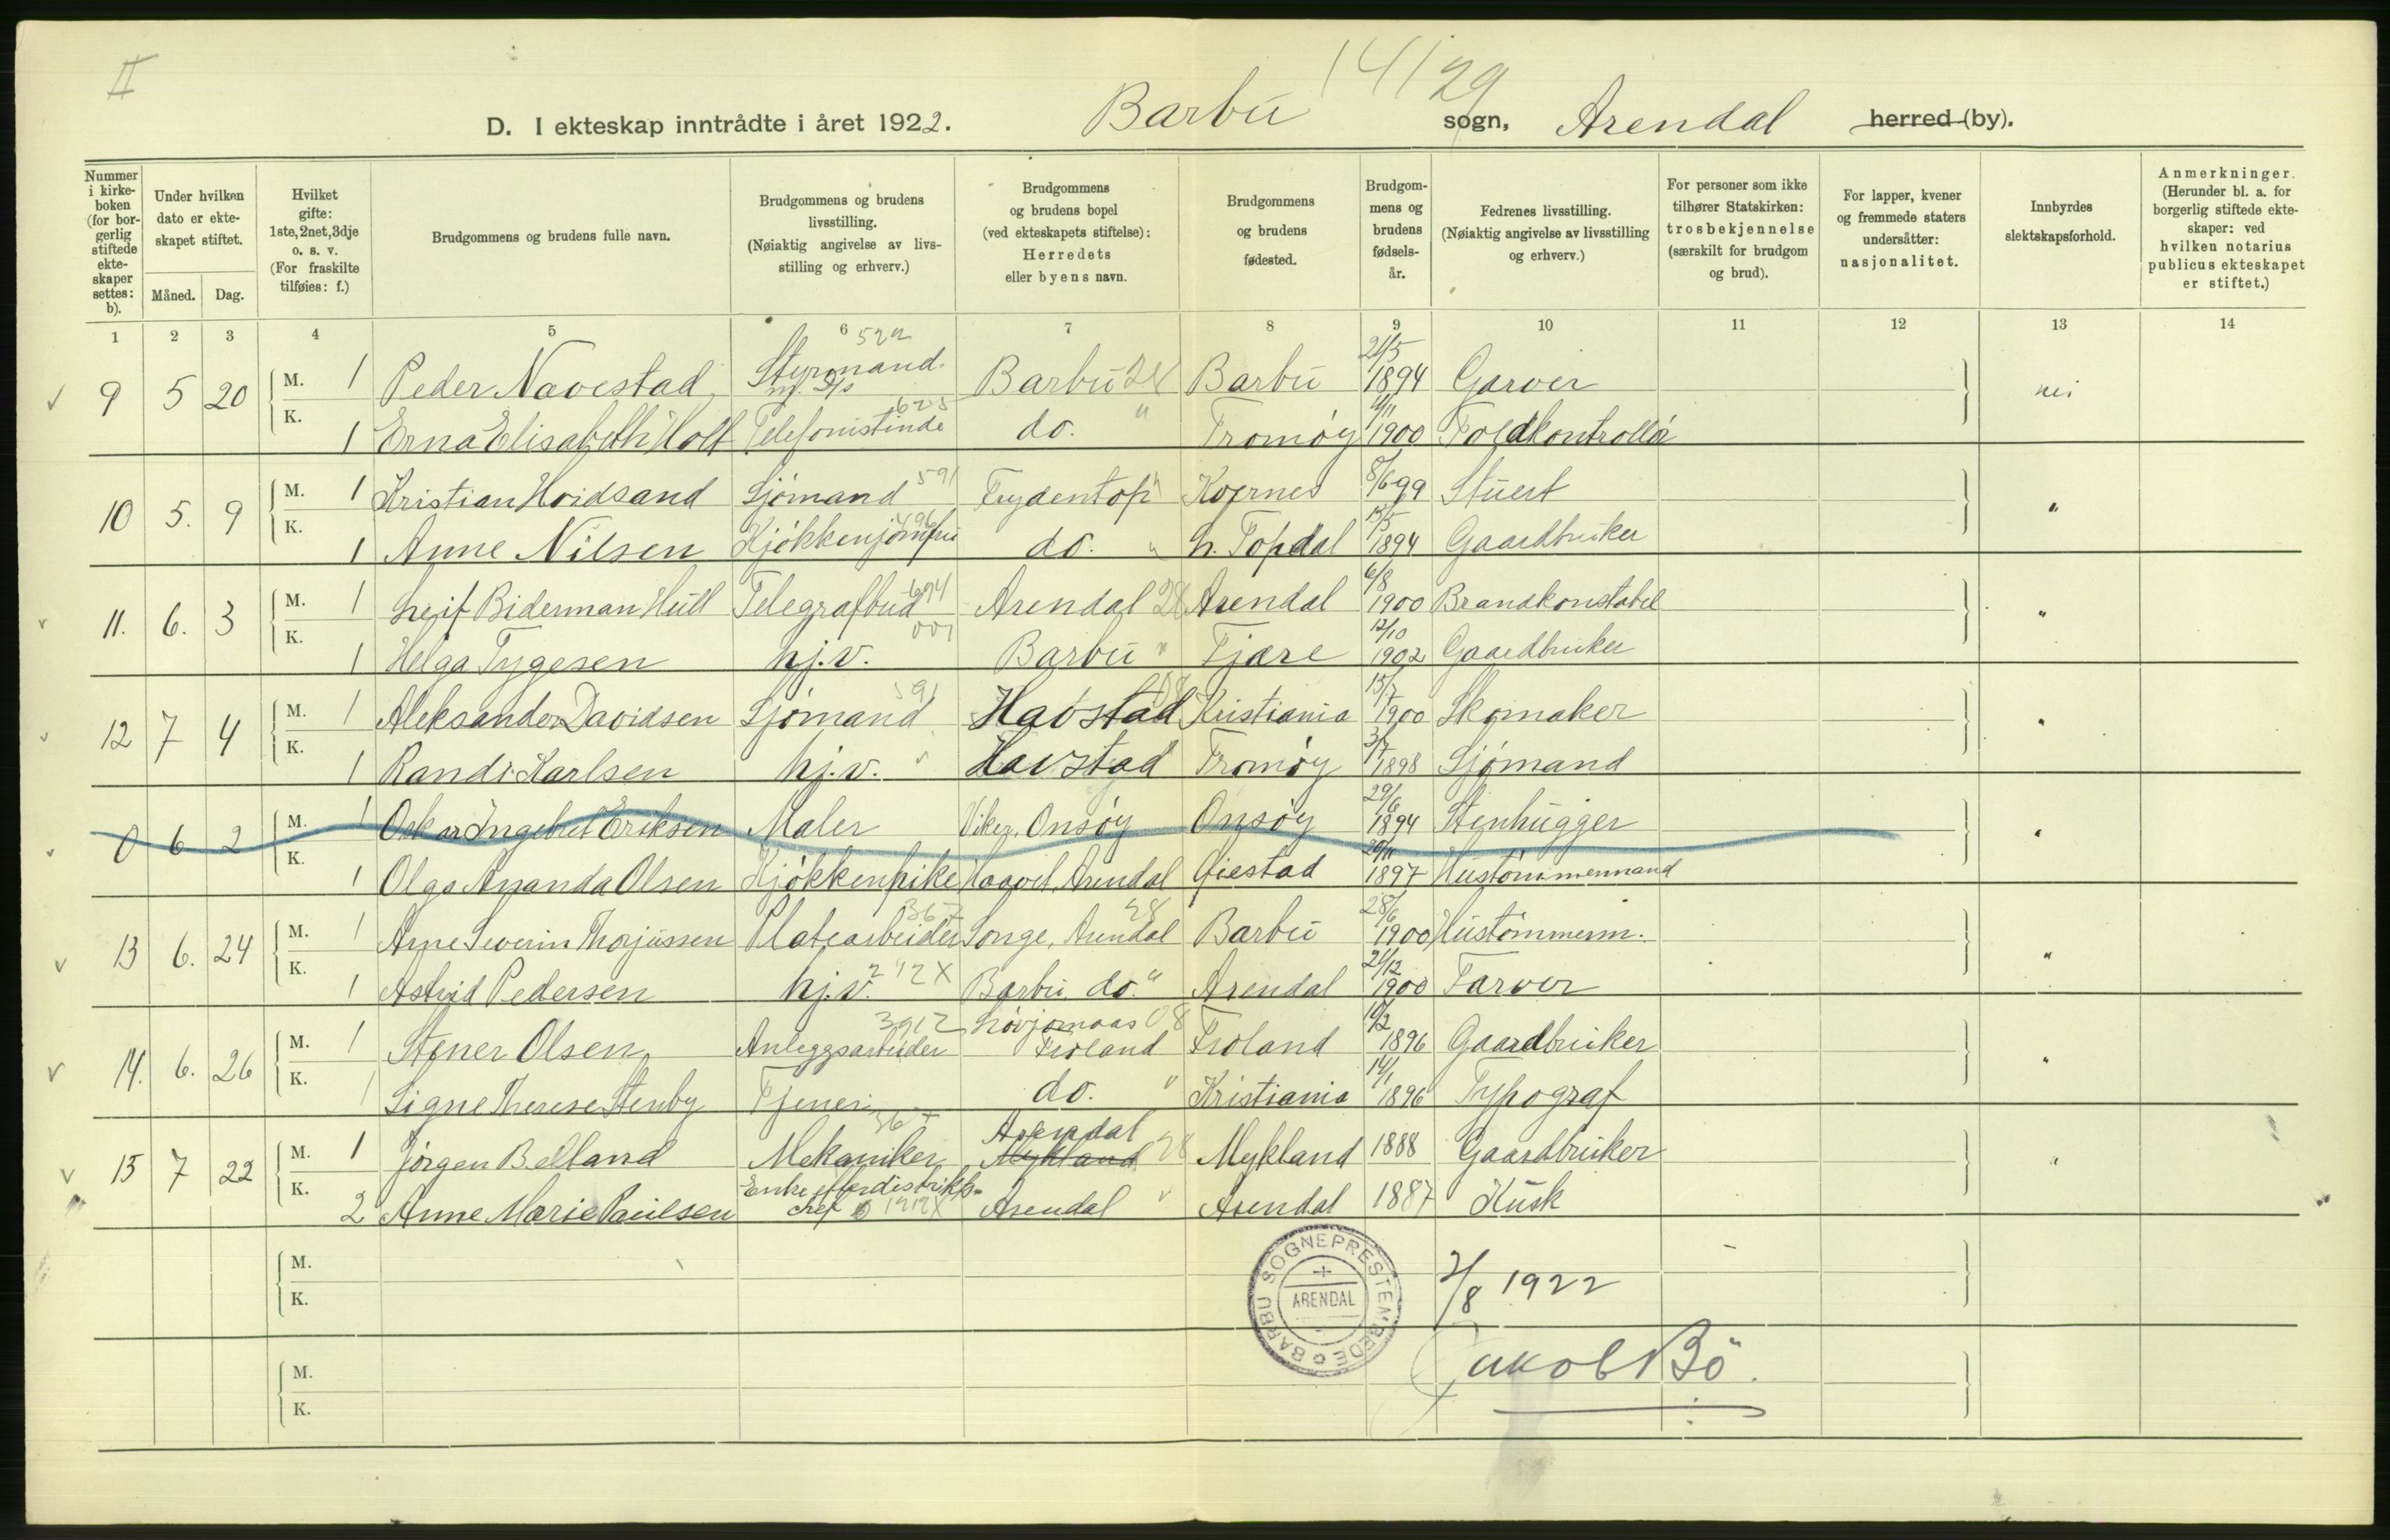 II
1412g
D. I ekteskap inntrådte i året 1922. Barbu sogn, Arendal herred (by).
Nummer i kirkeboken (for borgerlig stiftede ekteskaper settes: b).
Under hvilken dato er ekteskapet stiftet.
Måned. Dag.
Hvilket gifte: 1ste, 2net, 3dje o. s. v. (For fraskilte tilføies: f.)
Brudgommens og brudens fulle navn.
Brudgommens og brudens livsstilling. (Nøiaktig angivelse av livsstilling og erhverv.)
Brudgommens og brudens bopel (ved ekteskapets stiftelse): Herredets eller byens navn.
Brudgommens og brudens fødested.
Brudgommens og brudens fødselsår.
Fedrenes livsstilling. (Nøiaktig angivelse av livsstilling og erhverv.)
For personer som ikke tilhører Statskirken: trosbekjennelse (særskilt for brudgom og brud).
For lapper, kvener og fremmede staters undersåtter: nasjonalitet.
Innbyrdes slektskapsforhold.
Anmerkninger. (Herunder bl. a. for borgerlig stiftede ekteskaper: ved hvilken notarius publicus ekteskapet er stiftet.)
1 2 3 4 5 6 7 8 9 10 11 12 13 14
9 5 20 M. 1 Peder Navestad Styrmand m/ S/s 522 Barbu 28 Barbu 21/5 1894 Garver nei
K. 1 Erna Elisabeth Holt Telefonistinde 625 do. " Tromøy 1900 Toldkontrollör
10 5. 9 M. 1 Kristian Hoidsand Sjömand 591 Frydentop " 8/6 99 Stuert "
K. 1 Anne Nilsen Kjökkenjomfru 496 do. " Topdal 15/5 1894 Gaardbruker
11. 6. 3 M. 1 Leif Biderman Hull Telegrafbud 694 Arendal 28 Arendal 6/8 1900 Brandkonstabel "
K. 1 Helga Tygesen hj.v. 001 Barbu " Fjære 12/10 1902 Gaardbruker
12 7 4 M. 1 Aleksander Davidsen Sjömand 591 Havstad Kristiania 1900 Skomaker "
K. 1 Randi Karlsen hj.v. Havstad Tromöy 1898 Sjömand
0 6 2 M. 1 Oskar Ingebret Eriksen Maler Viker, Onsöy Onsöy 29/6 1894 Stenhugger "
K. 1 Olga Amanda Olsen Kjökkenpike Arendal Öiestad 20/11 1897 Hustömmermand
13 6. 24 M. 1 Arne Severin Thorjussen Platearbeider 367 Songe, Arendal 28 Barbu 28/6 1900 Hustömmerm. "
K. 1 Astrid Pedersen hj.v. 242X Barbu do. " Arendal 21/12 1900 Farver
14. 6. 26 M. 1 Stener Olsen Anleggsarbeider 3912 Lövjomaas Froland 08 Froland 1896 Gaardbruker "
K. 1 Signe Therese Stenby Tjener do. " Kristiania 14/1 1896 Typograf
15 7 22 M. 1 Jörgen Belland Mekaniker 367 Arendal Mykland 28 Mykland 1888 Gaardbruker "
K. 2 Anne Marie Paulsen Enke efter distrikts- chef Arendal " Arendal 1887 Kusk
M.
K.
M.
K.
BARBU SOGNEPRESTEMBEDE ARENDAL
2/8 1922
Jakob Bö.